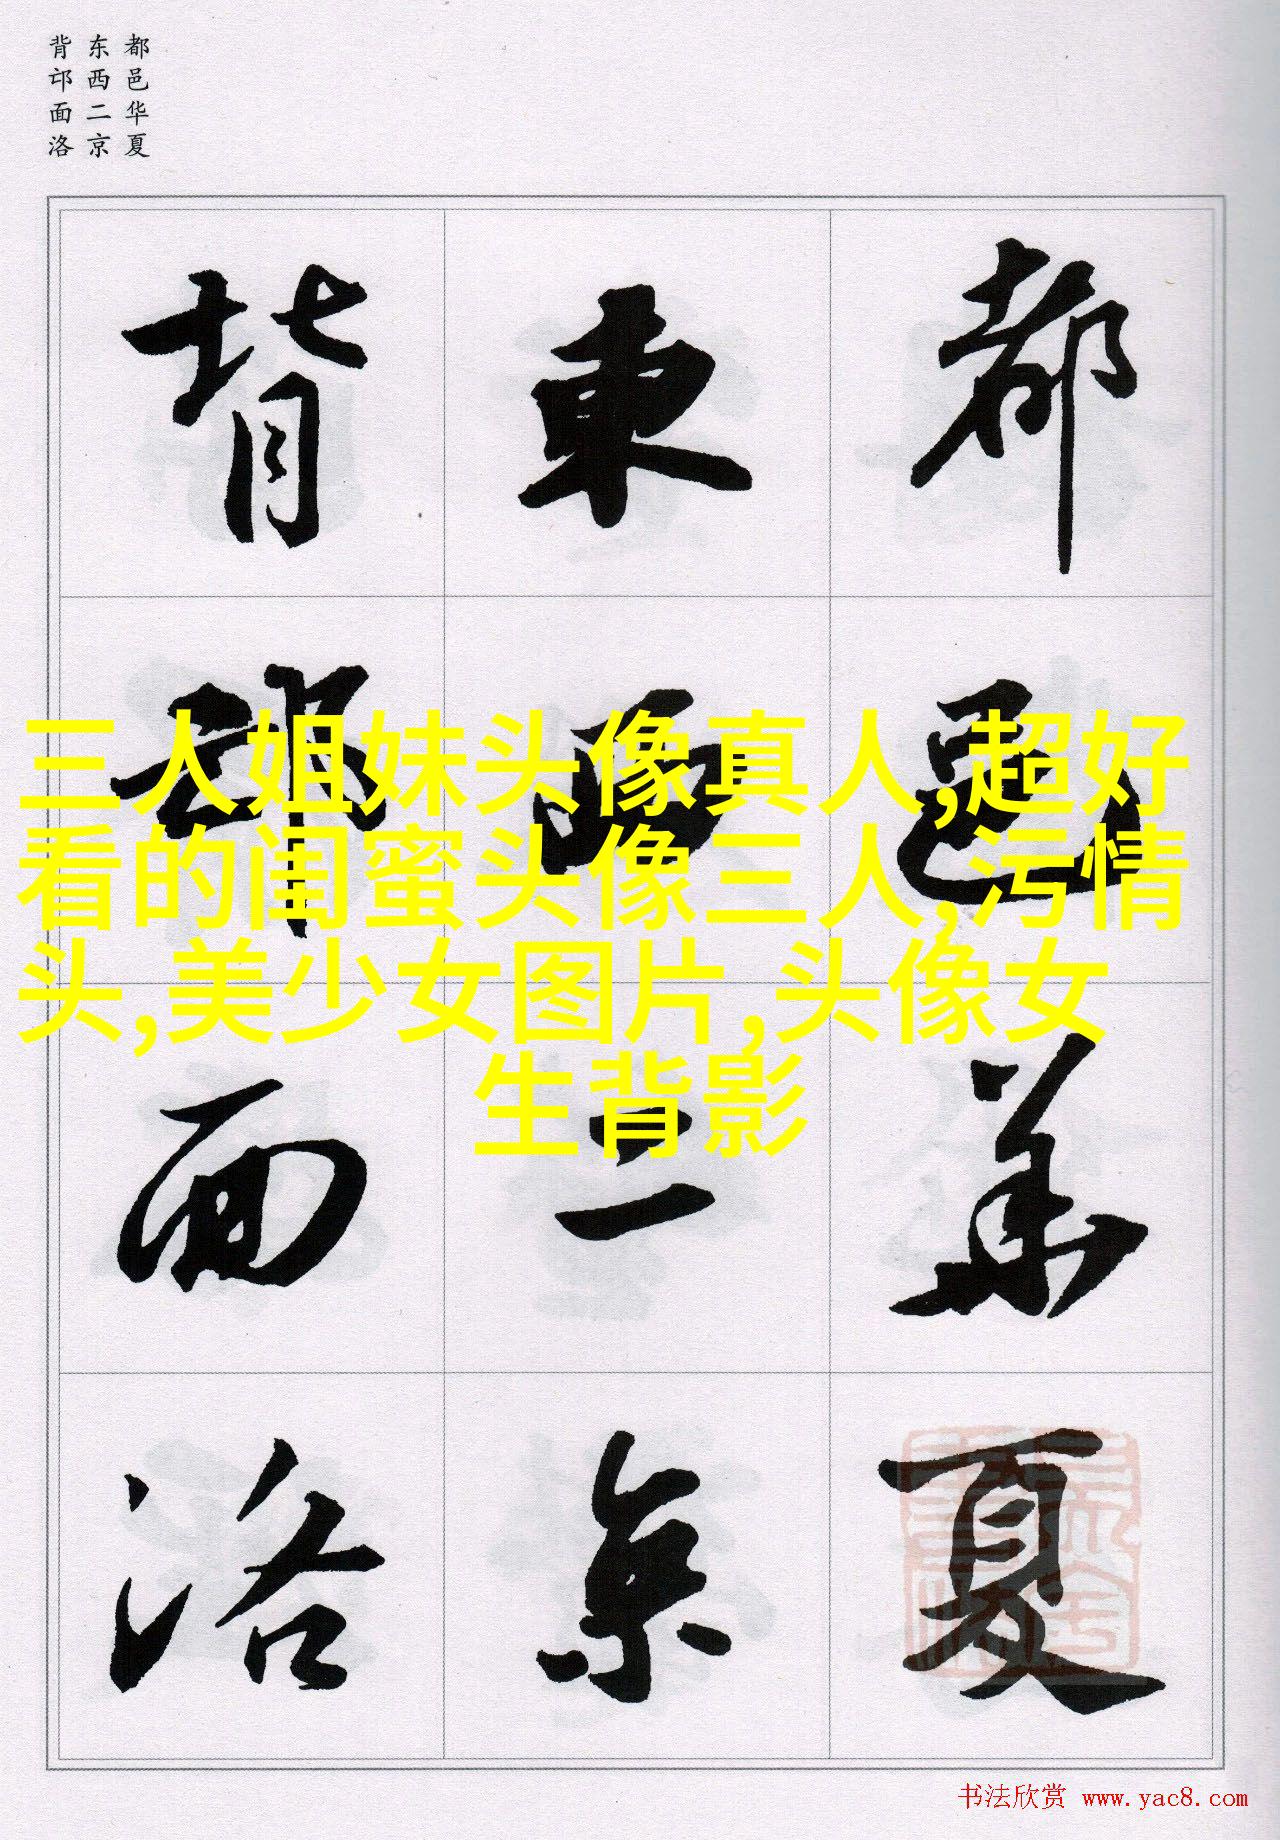 都邑华夏
东西二京
背邙面洛
都邑華夏
東西二京
背邙面洛
三人姐妹头像真人,超好
看的闺蜜头像三人,污情
头,美少女图片,头像女
生背影
书法欣赏 www.yac8.com